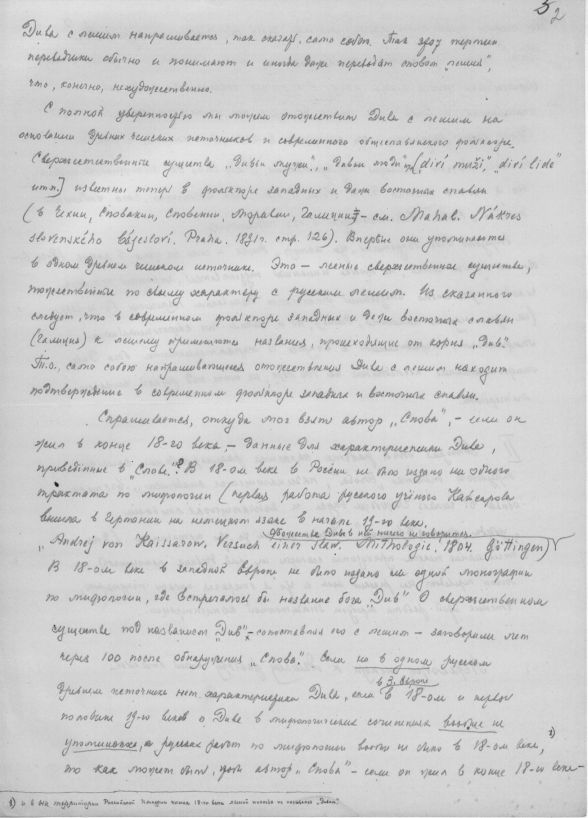 3 2
Дива с лешим напрашивается, так сказать, само собою. Так этот термин
переводчики обычно и понимают и иногда даже переводят словом „леший“,
что, конечно, нехудожественно.
С полной уверенностью мы можем отождествить Дива с лешим на
основании древних чешских источников и современного общеславянского фольклора.
Сверхъестественные существа „дивьи мужи“, „дивьи люди“ [„diví muží,“ „diví lidé“
и т.п.] известны теперь в фольклоре западных и даже восточных славян
(в Чехии, Словакии, Словении, Моравии, Галиции – см. Máchal. Nákres
slovenského bájesloví. Praha. 1891 г. стр. 126). Впервые они упоминаются
в одном древнем чешском источнике. Это – лесные сверхъестественные существа,
тождественные по своему характеру с русским лешим. Из сказанного
следует, что в современном фольклоре западных и даже восточных славян
(Галиция) к лешему применяются названия, происходящие от корня „див“.
Т.о., само собою напрашивающееся отождествление Дива с лешим находит
подтверждение в современном фольклоре западных и восточных славян.
Спрашивается, откуда мог взять автор „Слова“, – если он
жил в конце 18-го века, – данные для характеристики Дива,
приведённые в „Слове“? В 18-ом веке в России не было издано ни одного
трактата по мифологии (первая работа русского учёного Кайсарова
вышла в Германии на немецком языке в начале 19-го века.
о божестве Див в ней ничего не говорится.
„Andrej von Kaissarow. Versuch einer slaw. Mithologie, 1804. Göttingen)
В 18-ом веке в западной Европе не было издано ни одной монографии
по мифологии, где встречалось бы название бога „Див“. О сверхъестественном
существе под названием „Див“, – сопоставляя его с лешим – заговорили лет
через 100 после обнаружения „Слова“. Если ни в одном русском
в З. Европе
древнем источнике нет характеристики Дива, если в 18-ом и первой
половине 19-го веков о Диве в мифологических сочинениях вообще не
упоминалось, а русских работ по мифологии вообще не было в 18-ом веке, 1)
то как может быть, чтобы автор „Слова“ – если он жил в конце 18-го века –
1) и в б территории Российской Империи конца 18-го века леший никогда не назывался „Дивом“.